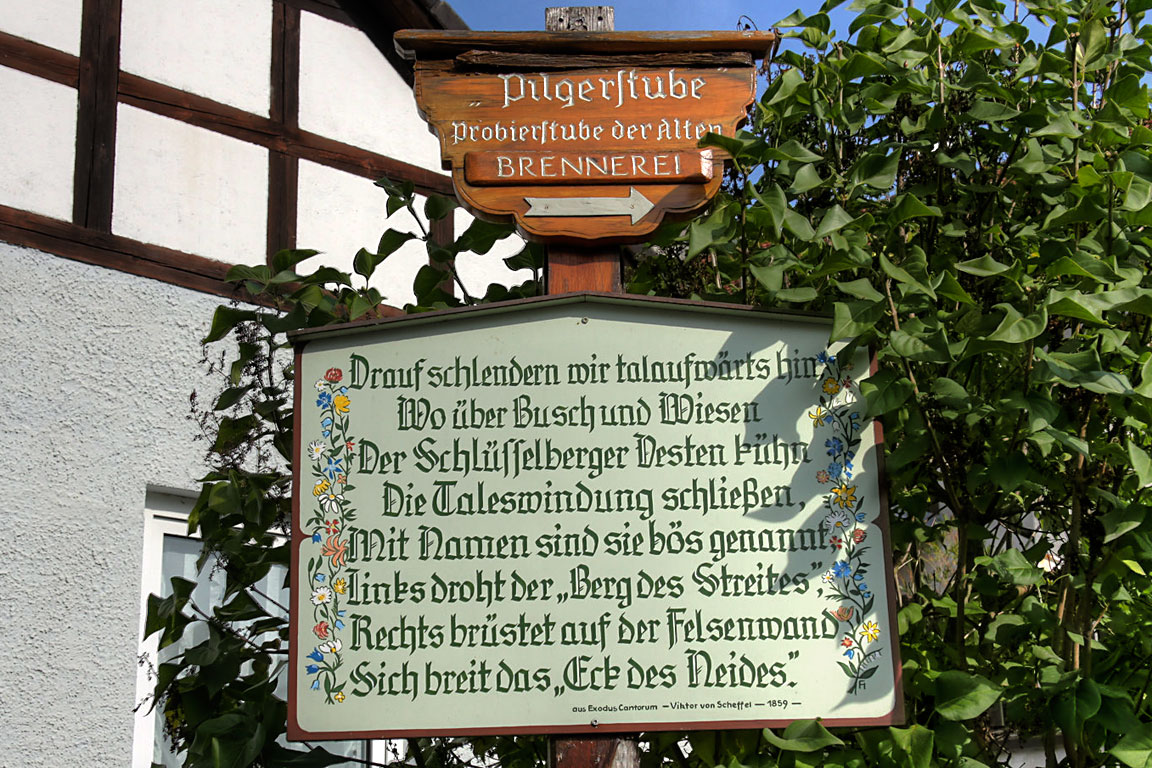 „Pilgerstube"
Probierstube der Alten
BRENNEREI
Drauf schlendern wir talaufwärts hin
Wo über Busch und Wiesen
Der Schlüsselberger Vesten kühn
Die Taleswindung schließen,
Mit Namen sind sie bös genannt,
Links droht der „Berg des Streites",
Rechts brüstet auf der Felsenwand
Sich breit das „Eck des Neides."
aus Exodus Cantorum – Viktor von Scheffel – 1859 –